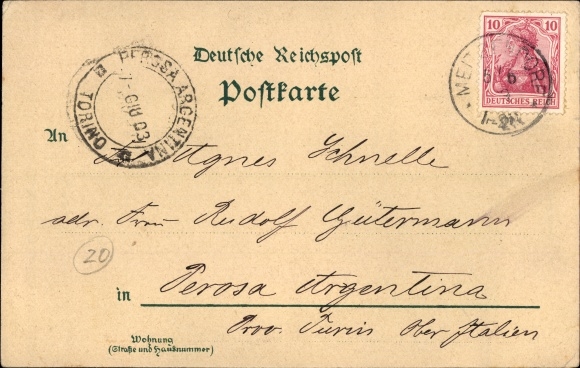 Deutsche Reichspost
Postkarte
10 10
DEUTSCHES REICH
PEROSA ARGENTINA
GIU 03
TORINO
An Agnes Schnelle
adr. Frau Rudolf Gütermann
20
in Perosa Argentina
Prov. Turin Ober Italien
Wohnung
(Straße und Hausnummer)